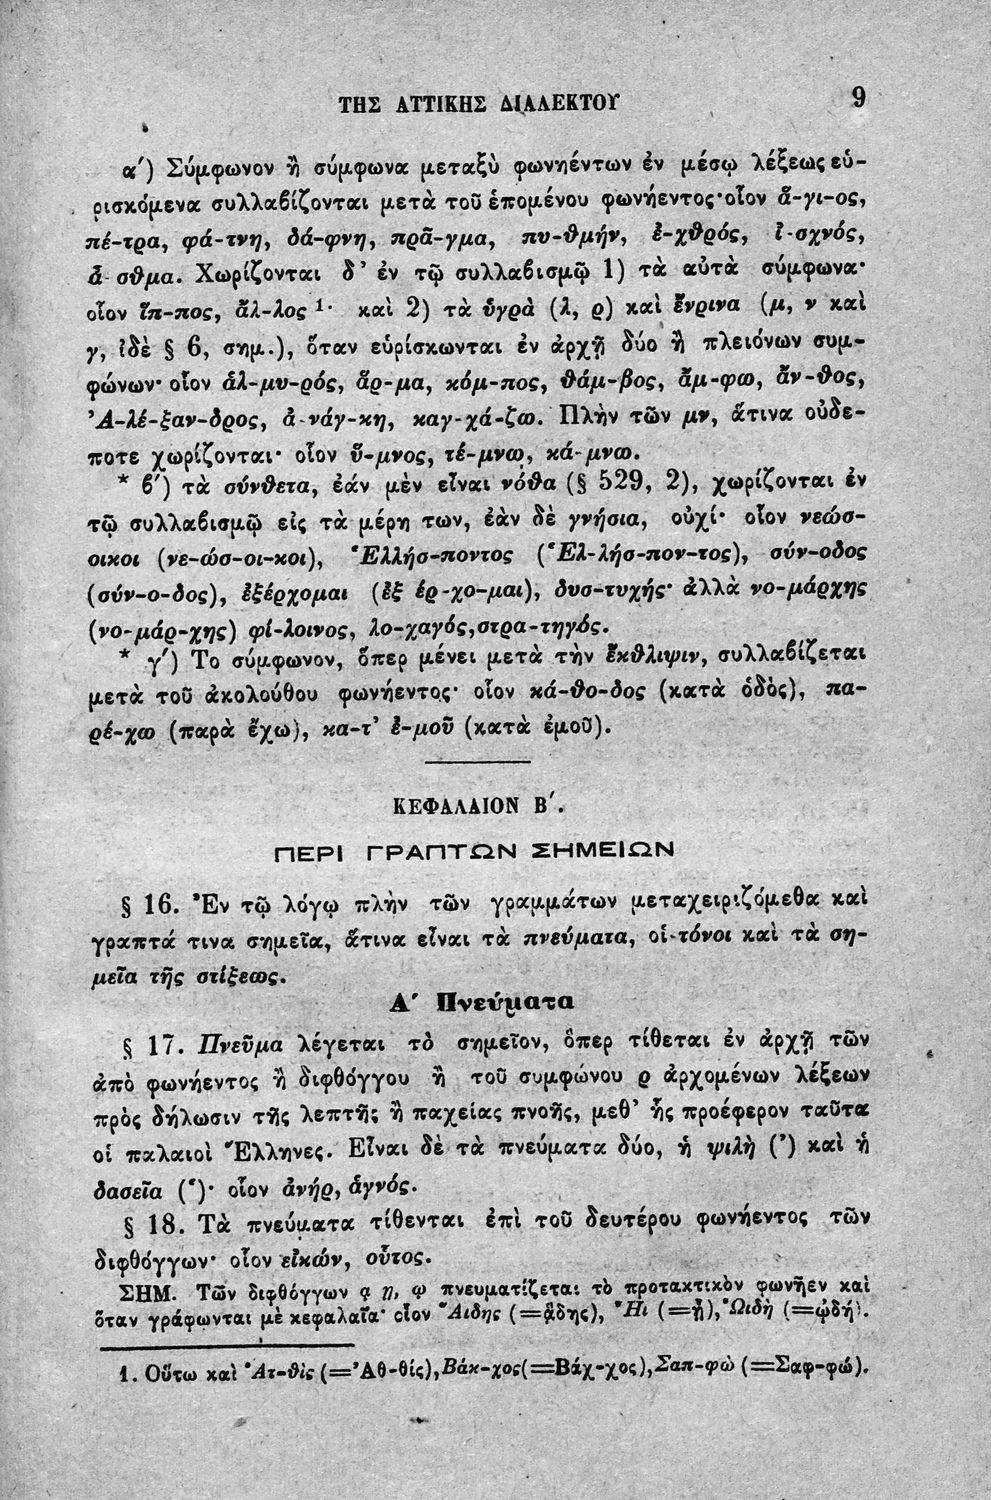 ΤΗΣ ΑΤΤΙΚΗΣ ΔΙΑΛΕΚΤΟΥ 9
α′) Σύμφωνον ἢ σύμφωνα μεταξὺ φωνηέντων ἐν μέσῳ λέξεως εὑ-
ρισκόμενα συλλαβίζονται μετὰ τοῦ ἑπομένου φωνήεντος· οἷον ἅ-γι-ος,
πέ-τρα, φά-τνη, δά-φνη, πρᾶ-γμα, πυ-θμήν, ἐ-χθρός, ἰ-σχνός,
ἆ-σθμα. Χωρίζονται δ’ ἐν τῷ συλλαβισμῷ 1) τὰ αὐτὰ σύμφωνα·
οἷον ἵπ-πος, ἄλ-λος ¹· καὶ 2) τὰ ὑγρὰ (λ, ρ) καὶ ἔνρινα (μ, ν καὶ
γ, ἰδὲ § 6, σημ.), ὅταν εὑρίσκωνται ἐν ἀρχῇ δύο ἢ πλειόνων συμ-
φώνων· οἷον ἁλ-μυ-ρός, ἅρ-μα, κόμ-πος, θάμ-βος, ἄμ-φω, ἄν-θος,
’Α-λέ-ξαν-δρος, ἀ-νάγ-κη, καγ-χά-ζω. Πλὴν τῶν μν, ἅτινα οὐδε-
ποτε χωρίζονται· οἷον ὕ-μνος, τέ-μνω, κά-μνω.
* β′) τὰ σύνθετα, ἐάν μὲν εἶναι νόθα (§ 529, 2), χωρίζονται ἐν
τῷ συλλαβισμῷ εἰς τὰ μέρη των, ἐὰν δὲ γνήσια, οὐχί· οἷον νεώσ-
οικοι (νε-ώσ-οι-κοι), Ἑλλήσ-ποντος (Ἑλ-λήσ-πον-τος), σύν-οδος
(σύν-ο-δος), ἐξέρχομαι (ἐξ έρ-χο-μαι), δυσ-τυχής· ἀλλὰ νο-μάρχης
(νο-μάρ-χης) φί-λοινος, λο-χαγός, στρα-τηγός.
* γ′) Το σύμφωνον, ὅπερ μένει μετὰ τὴν ἔκθλιψιν, συλλαβίζεται
μετὰ τοῦ ἀκολούθου φωνήεντος· οἷον κά-θο-δος (κατὰ ὁδὸς), πα-
ρέ-χω (παρὰ ἔχω), κα-τ’ ἐ-μοῦ (κατὰ ἐμοῦ).
ΚΕΦΑΛΑΙΟΝ Β′.
ΠΕΡΙ ΓΡΑΠΤΩΝ ΣΗΜΕΙΩΝ
§ 16. Ἐν τῷ λόγῳ πλὴν τῶν γραμμάτων μεταχειριζόμεθα καὶ
γραπτά τινα σημεῖα, ἅτινα εἶναι τὰ πνεύματα, οἱ τόνοι καὶ τὰ ση-
μεῖα τῆς στίξεως.
Α′ Πνεύματα
§ 17. Πνεῦμα λέγεται τὸ σημεῖον, ὅπερ τίθεται ἐν ἀρχῇ τῶν
ἀπὸ φωνήεντος ἢ διφθόγγου ἢ τοῦ συμφώνου ρ ἀρχομένων λέξεων
πρὸς δήλωσιν τῆς λεπτῆς ἢ παχείας πνοῆς, μεθ’ ἧς προέφερον ταῦτα
οἱ παλαιοὶ Ἕλληνες. Εἶναι δὲ τὰ πνεύματα δύο, ἡ ψιλὴ (᾿) καὶ ἡ
δασεῖα (῾)· οἷον ἀνήρ, ἁγνός.
§ 18. Τὰ πνεύματα τίθενται ἐπὶ τοῦ δευτέρου φωνήεντος τῶν
διφθόγγων· οἷον εἰκών, οὗτος.
ΣΗΜ. Τῶν διφθόγγων ᾳ ῃ, ῳ πνευματίζεται τὸ προτακτικὸν φωνῆεν καὶ
ὅταν γράφωνται μὲ κεφαλαῖα· οἷον Ἅιδης (=ᾅδης), Ἧι (=ᾗ), Ὠιδὴ (=ᾠδή).
1. Οὕτω καὶ Ἀτ-θὶς (=Ἀθ-θίς), Βάκ-χος (=Βάχ-χος), Σαπ-φὼ (=Σαφ-φώ).